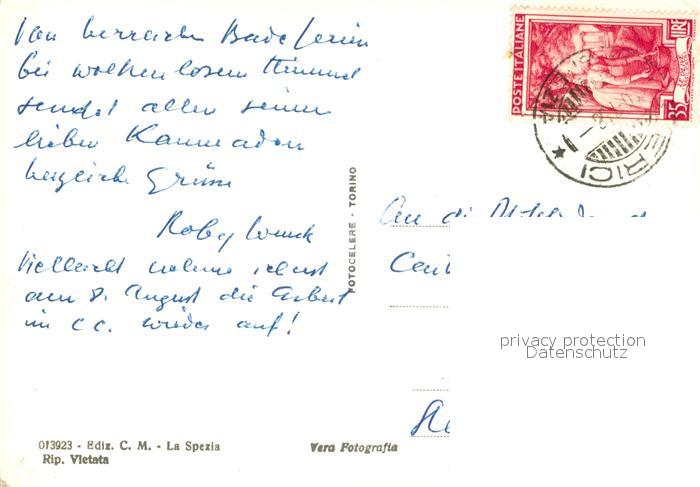 Von herrlichen Badeferien
bei wolkenlosem Himmel
sendet allen seinen
lieben Kameraden
herzliche Grüsse
Roby
Vielleicht nehme ich erst
am 8. August die Arbeit
im CC. wieder auf!
POSTE ITALIANE
LIRE
35
ERICI
FOTOCELERE - TORINO
An die
Cent
privacy protection
Datenschutz
013923 - Ediz. C. M. - La Spezia
Rip. Vietata
Vera Fotografia